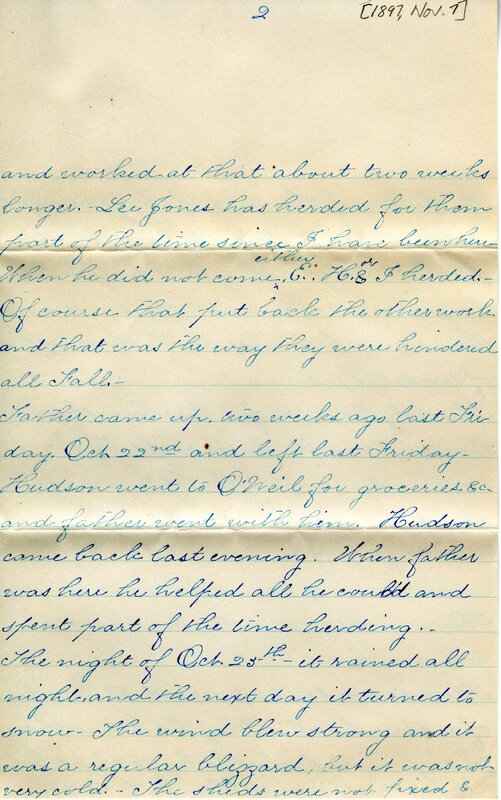 2
[1897, Nov. 7]
and worked at that about two weeks
longer. - Lee Jones has herded for them
part of the time since I have been here
When he did not come, either E. H. or I herded. -
Of course that put back the other work
and that was the way they were hindered
all Fall. -
Father came up, two weeks ago last Fri-
day, Oct 22nd and left last Friday -
Hudson went to O'Neil for groceries &c
and father went with him. Hudson
came back last evening. When father
was here he helped all he could and
spent part of the time herding. -
The night of Oct. 25th - it rained all
night, and the next day it turned to
snow - The wind blew strong and it
was a regular blizzard, but it was not
very cold. - The sheds were not fixed &